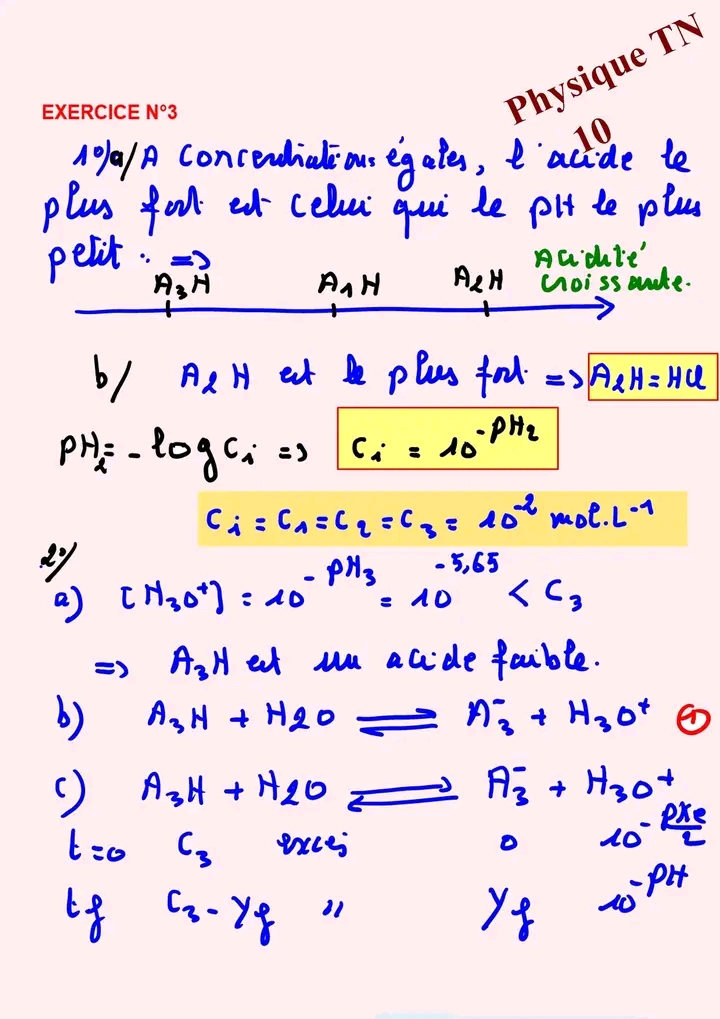 Physique TN
10
EXERCICE N°3
1°/a/ A concentrations égales, l'acide le
plus fort est celui qui le pH le plus
petit. =>
A₃H A₁H A₂H Acidité croissante.
b/ A₂H est le plus fort => A₂H = HCl
pH₂ = -log Ci => Ci = 10^-pH₂
Ci = C₁ = C₂ = C₃ = 10^-2 mol.L^-1
2°/
a) [H₃O⁺] = 10^-pH₃ = 10^-5,65 < C₃
=> A₃H est un acide faible.
b) A₃H + H2O ⇌ A₃⁻ + H₃O⁺ ①
c) A₃H + H2O ⇌ A₃⁻ + H₃O⁺
t=0 C₃ excès 0 10^-pKe/2
tf C₃-yf " yf 10^-pH